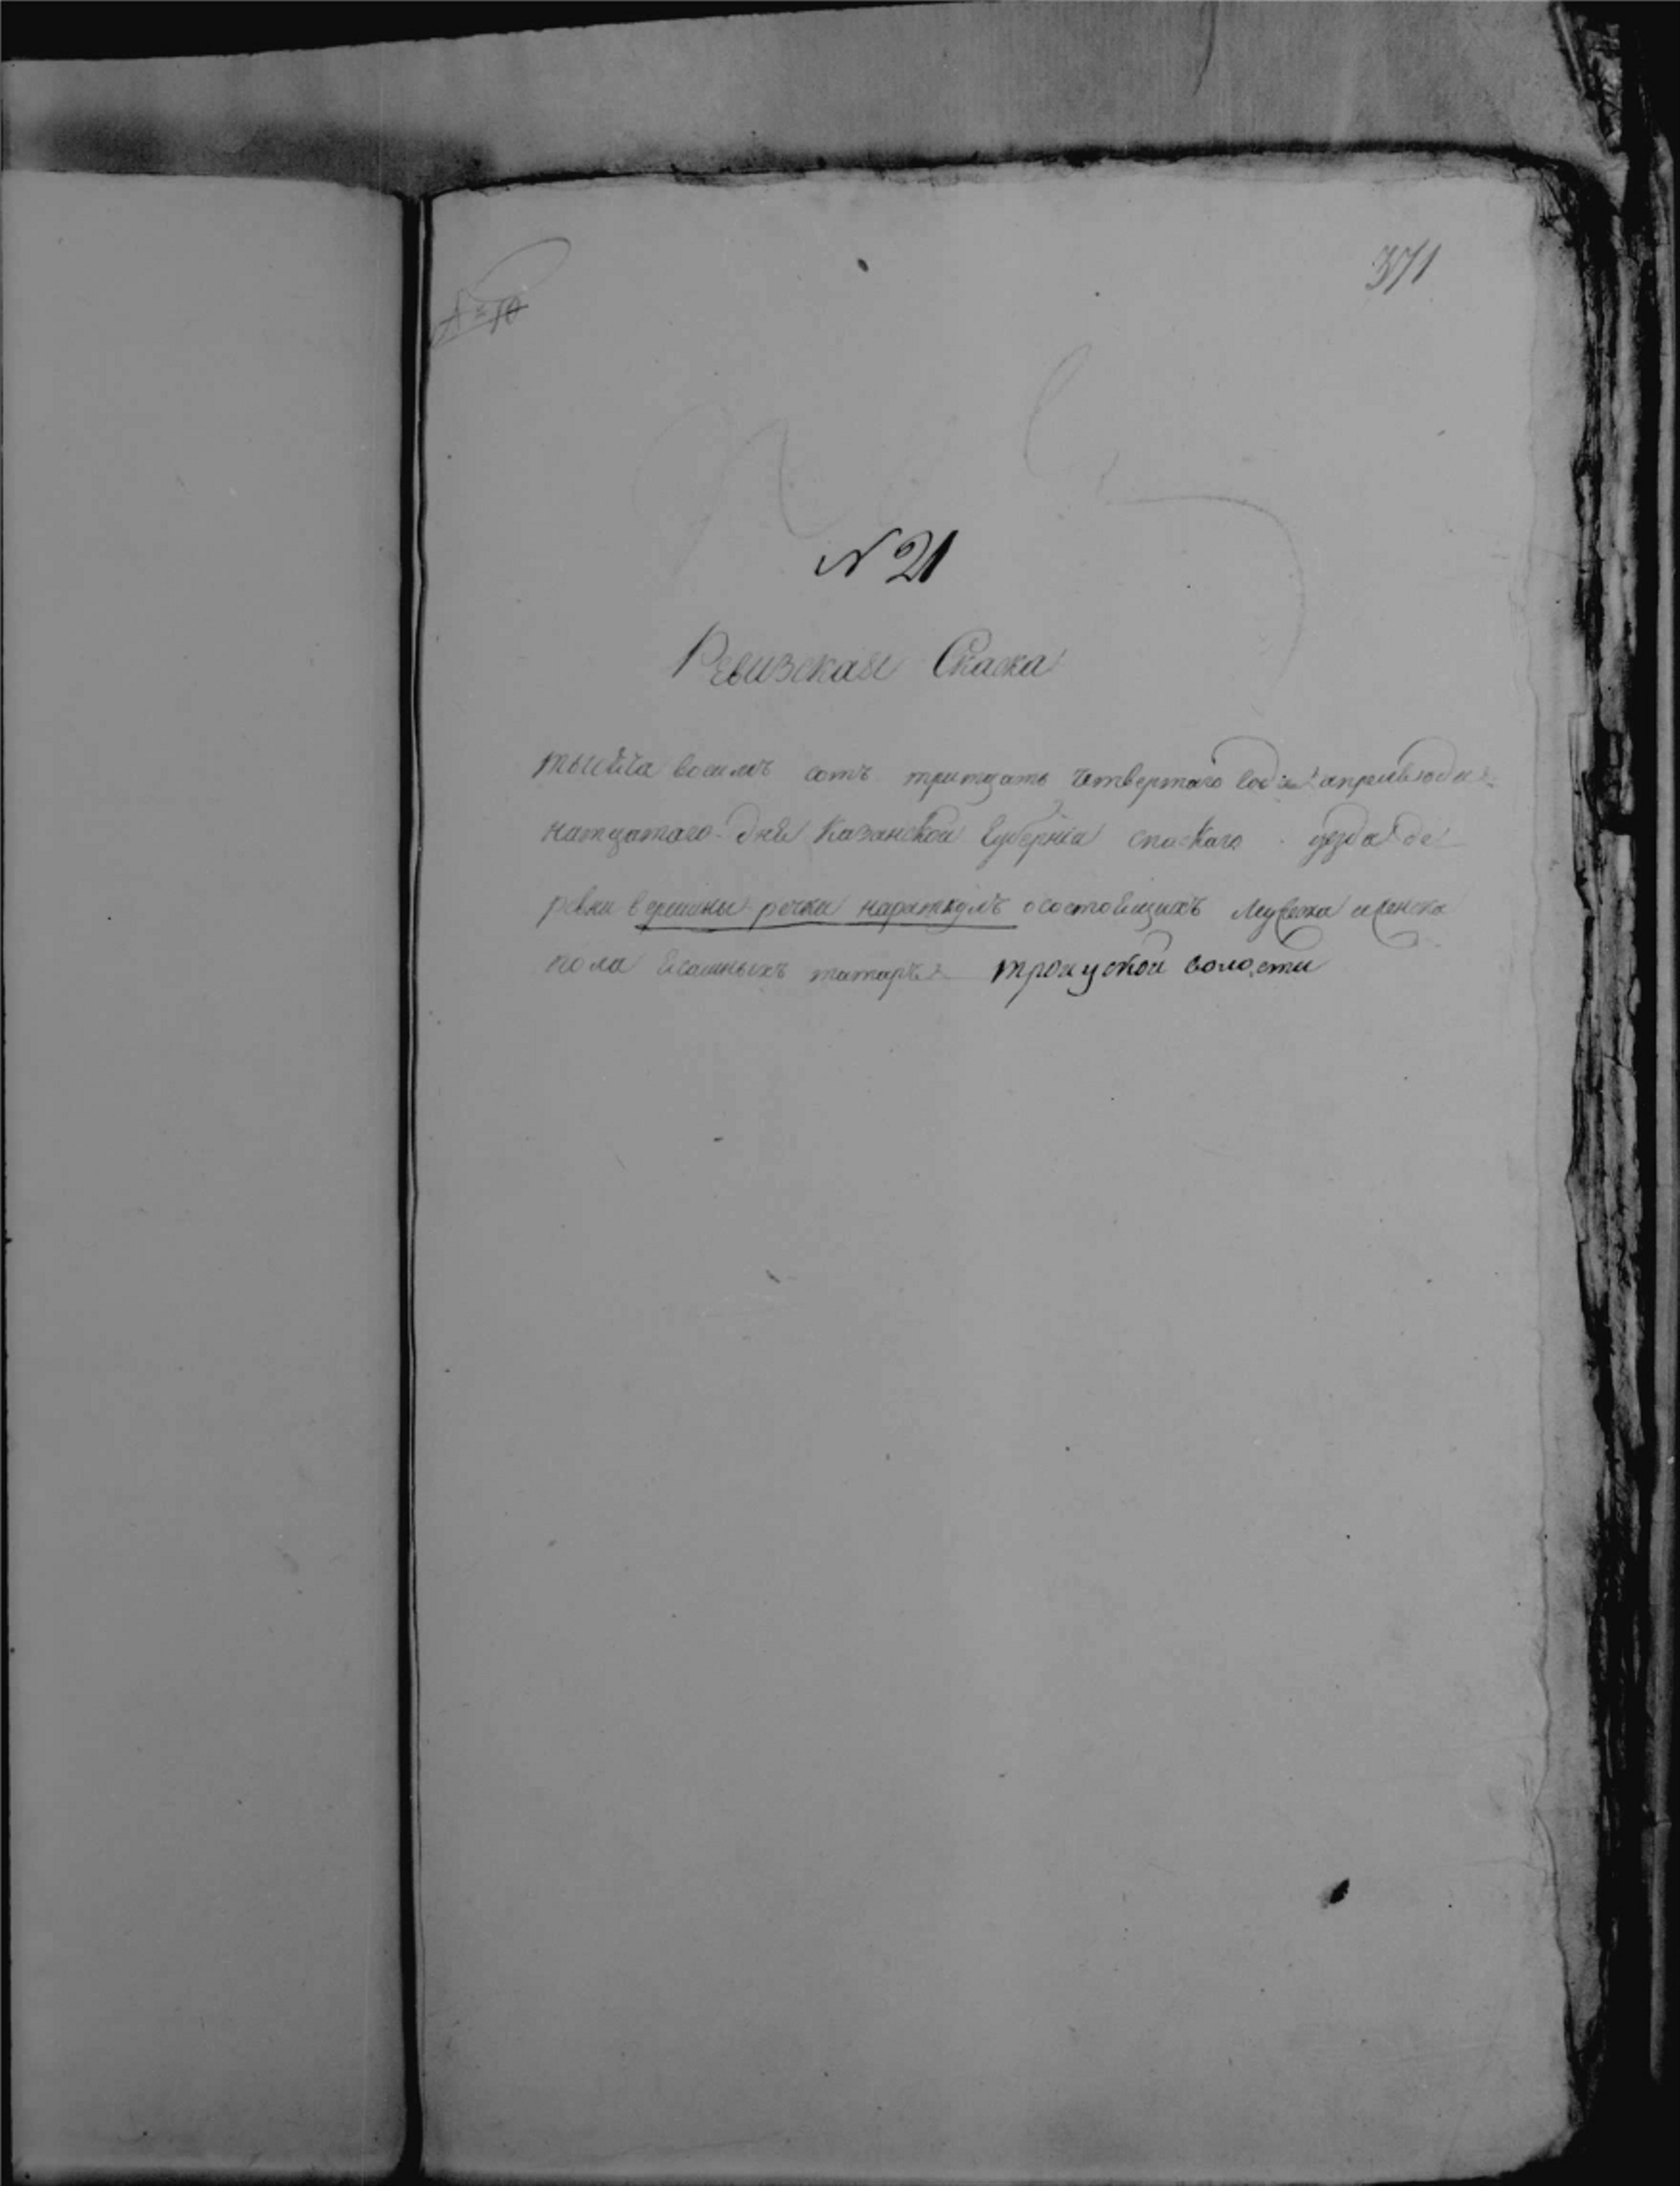 371
N 21
Ревизская Скаска
тысяча восемъ сотъ тритцать четвертаго года апреля оди
натцатаго дня Казанской Губерніи спаскаго уезда де
ревни вершины речки нараткулъ о состоящихъ мужеска и женска
пола ясашныхъ татаръ троицкой волости